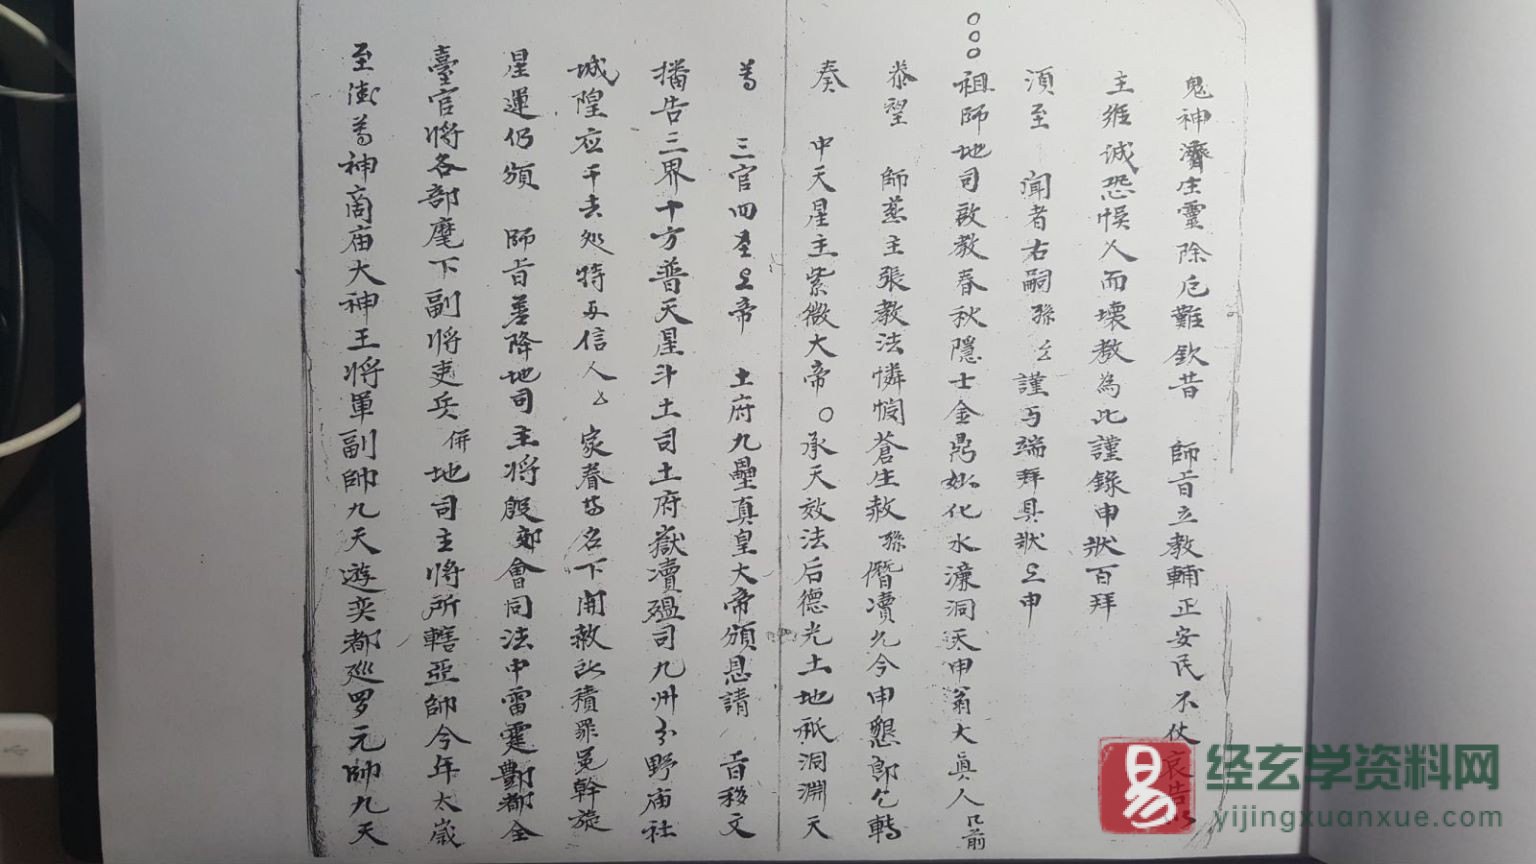 鬼神濟生靈除厄難欽昔 師旨立教輔正安民不伏哀告
主維誠恐悞人而壞教為此謹錄申狀百拜
須至 聞者右嗣孫 厶 謹与端拜具狀上申
○○○祖師地司啟教春秋隱士金鼎妙化水濂洞天申翁大真人 前
恭望 師慈主張教法憐憫蒼生赦孫僭瀆允今申懇即乞轉
奏 中天星主紫微大帝○承天效法后德光土地祇洞淵天
尊 三官四圣上帝 土府九壘真皇大帝頒恩請 旨移文
播告三界十方普天星斗土司土府嶽瀆瘟司九州分野庙社
城隍应干去处特与信人厶家眷等名下開赦 積罪冤幹旋
星運仍頒 師旨差降地司主將殷郊會同法中雷霆酆都全
臺官將各部麾下副將吏兵併地司主將所轄亞師今年太歲
至 尊神商庙大神王將軍副帥九天遊奕都巡罗元帥九天
易
经玄学资料网
yijingxuanxue.com